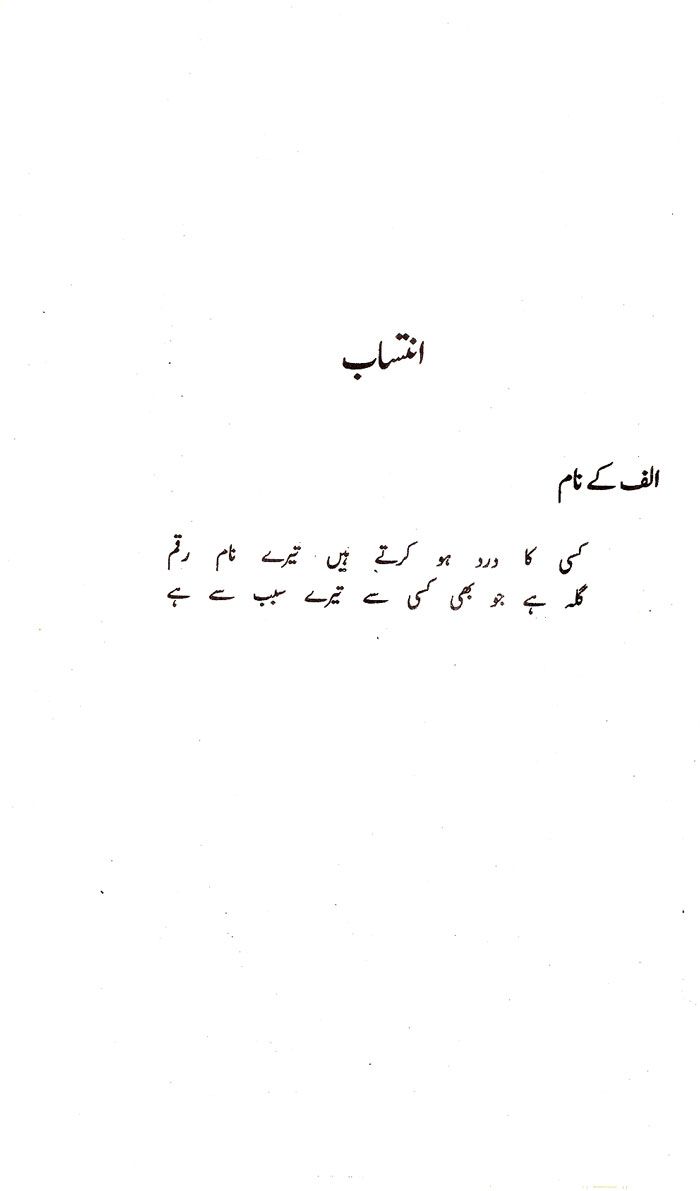 انتساب
الف کے نام
کسی کا درد ہو کرتے ہیں تیرے نام رقم
گلہ ہے جو بھی کسی سے تیرے سبب سے ہے